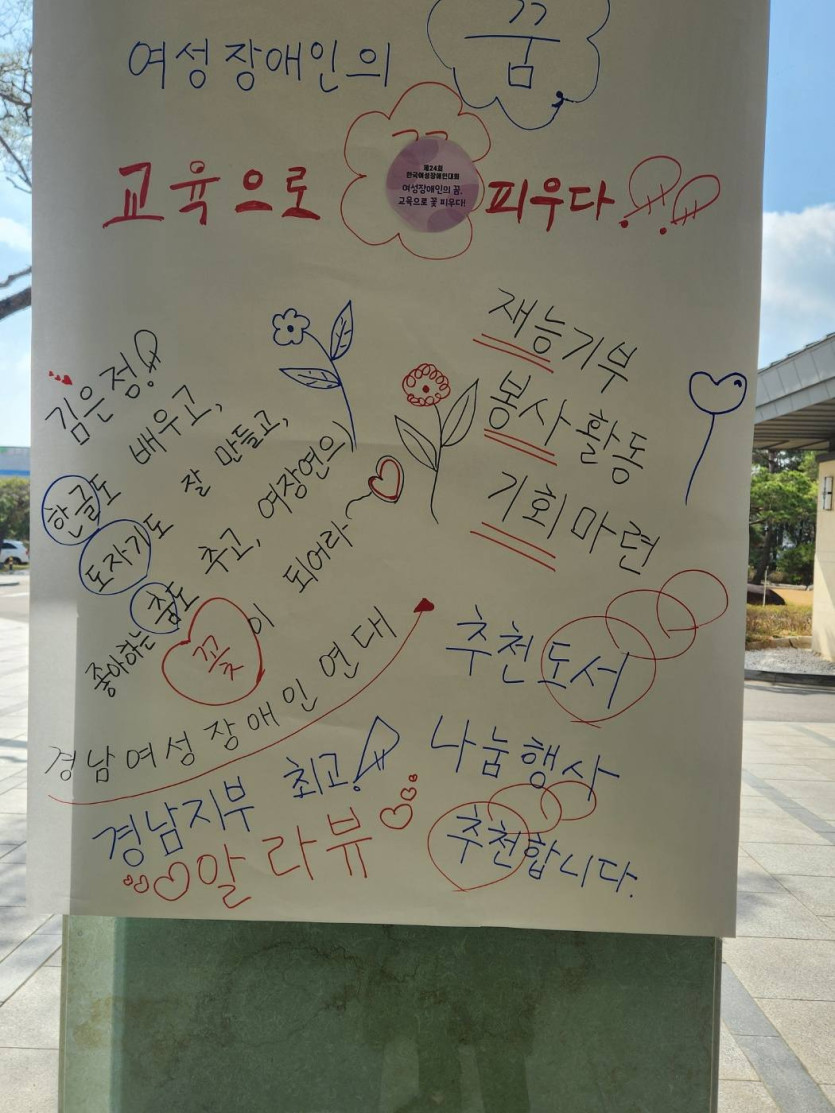 여성장애인의 꿈
교육으로 꽃 피우다!!
제24회
한국여성장애인대회
여성장애인의 꿈,
교육으로 꽃 피우다!
김은정!
한글도 배우고,
도자기도 잘 만들고,
춤도 추고, 여장연의
좋아하는 꽃이 되어라
경남여성장애인연대
경남지부 최고!
알라뷰
재능기부
봉사활동
기회마련
추천도서
나눔행사
추천합니다.